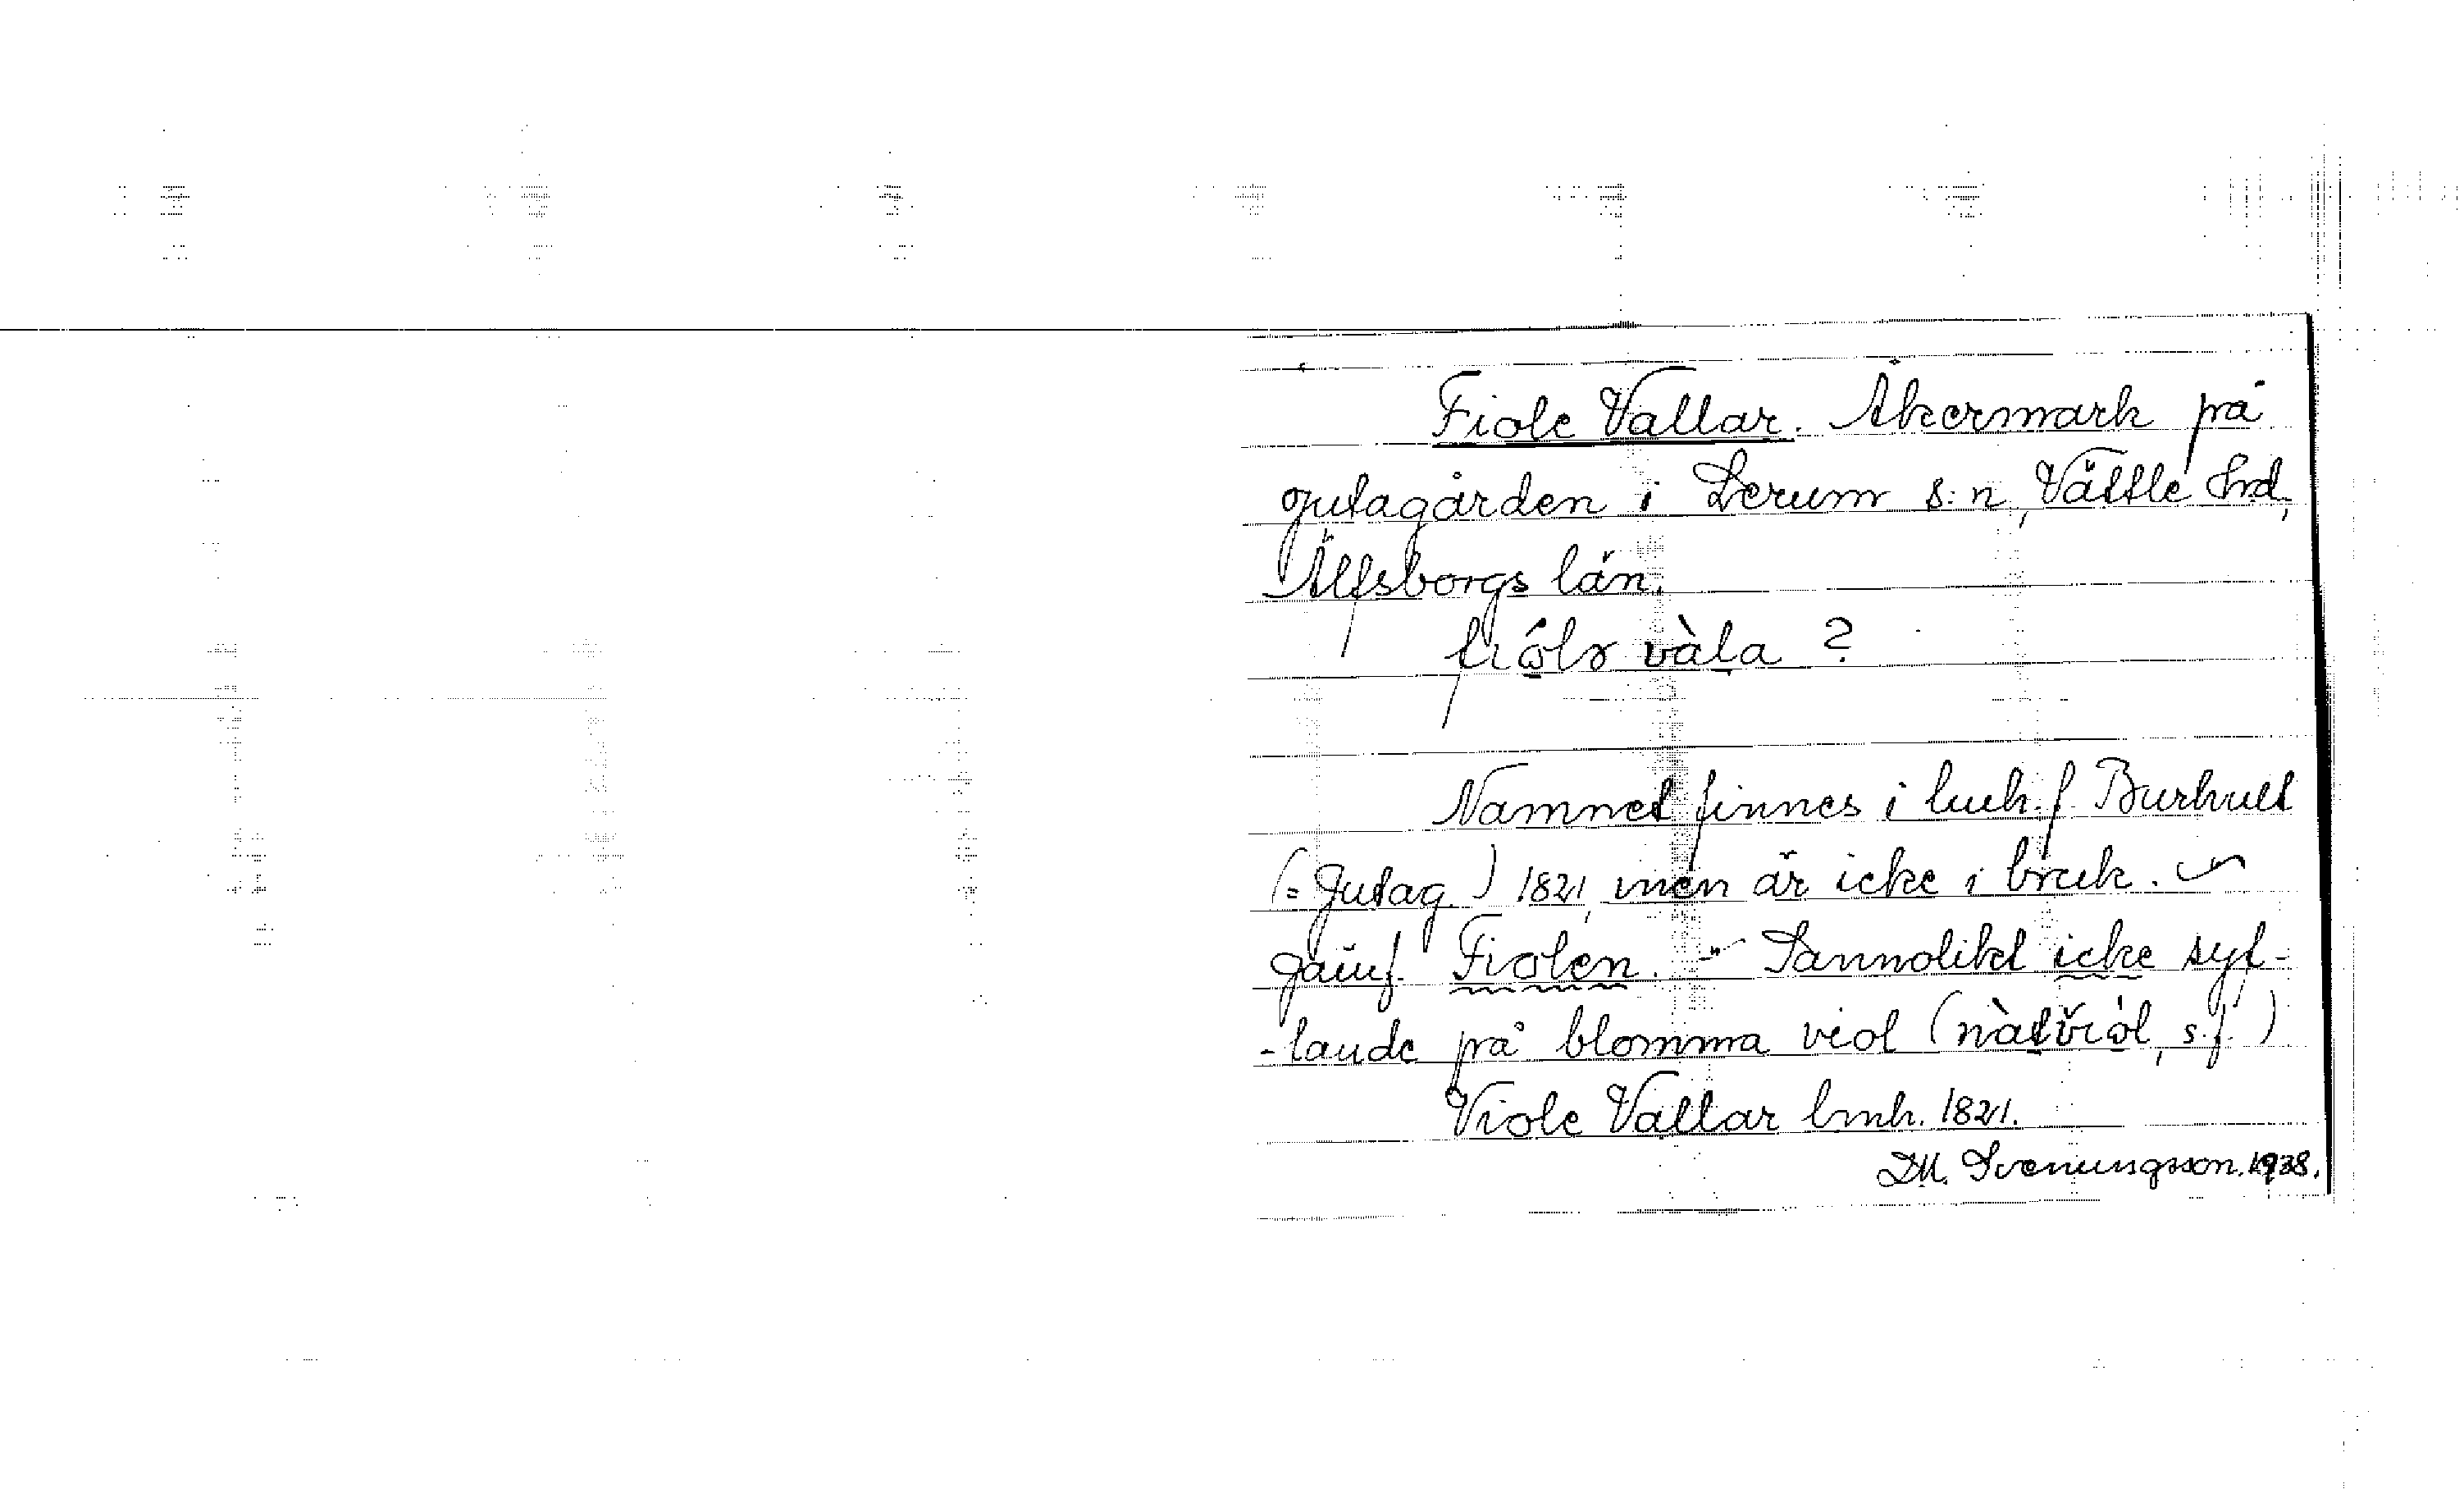 Fiole Vallar. Åkermark på
Jutagården i Lerum s:n, Vättle hrd,
Älfsborgs län.
fiólə vàla ?
Namnet finnes i lmh. f. Burhult
(= Jutag.) 1821, men är icke i bruk. –
Jämf. Fiolen. – Sannolikt icke syf-
-tande på blomma viol (nàtviól, s.f.)
Viole Vallar lmh. 1821.
D.M. Svenungsson. 1938.